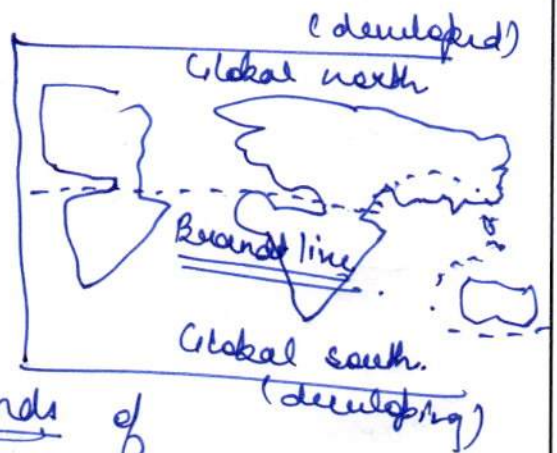 (developed)
Global north
Brandt line
Global south.
(developing)
nds of